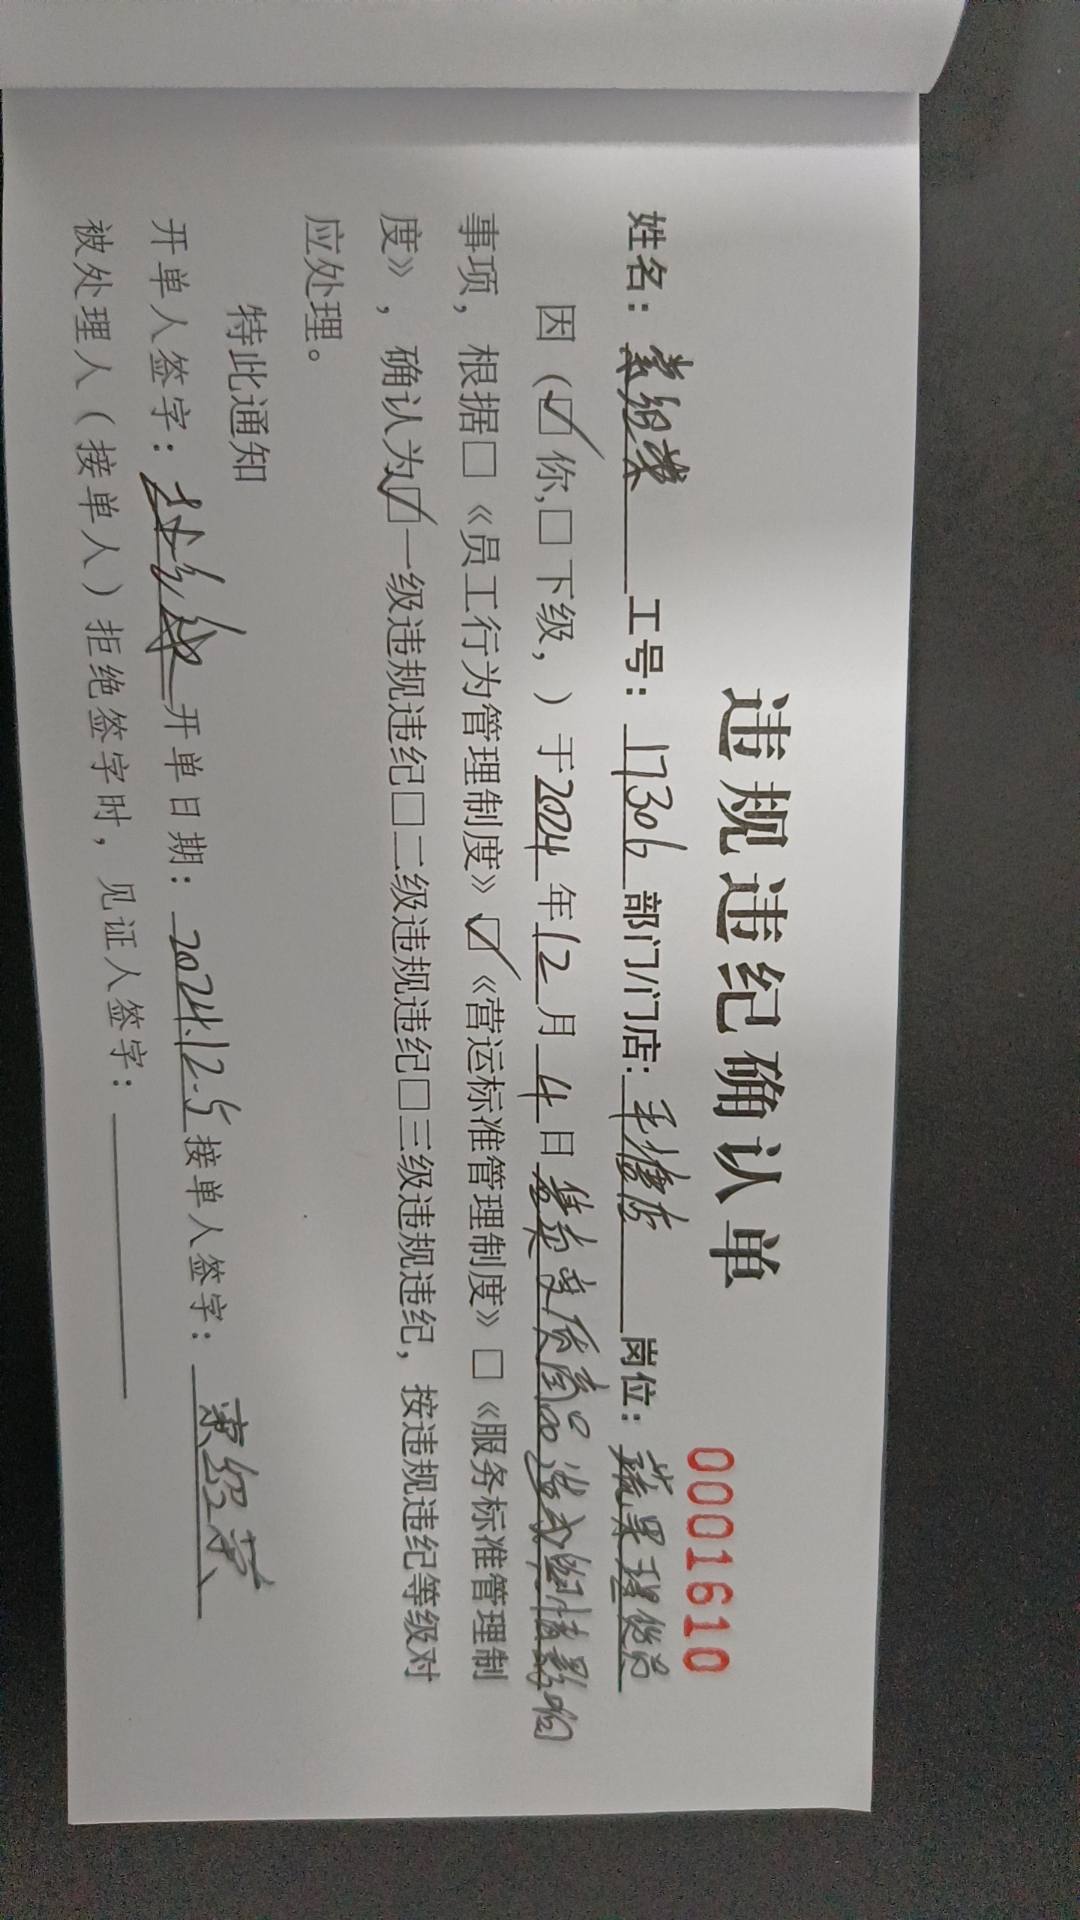 违规违纪确认单
0001610
姓名： 工号：17306 部门/门店： 岗位：蔬果理货员
因（☑你,□下级，）于2024年12月4日售卖变质商品造成组情影响
事项，根据□《员工行为管理制度》☑《营运标准管理制度》□《服务标准管理制
度》，确认为☑一级违规违纪□二级违规违纪□三级违规违纪，按违规违纪等级对
应处理。
特此通知
开单人签字： 开单日期：2024.12.5 接单人签字：
被处理人（接单人）拒绝签字时，见证人签字：